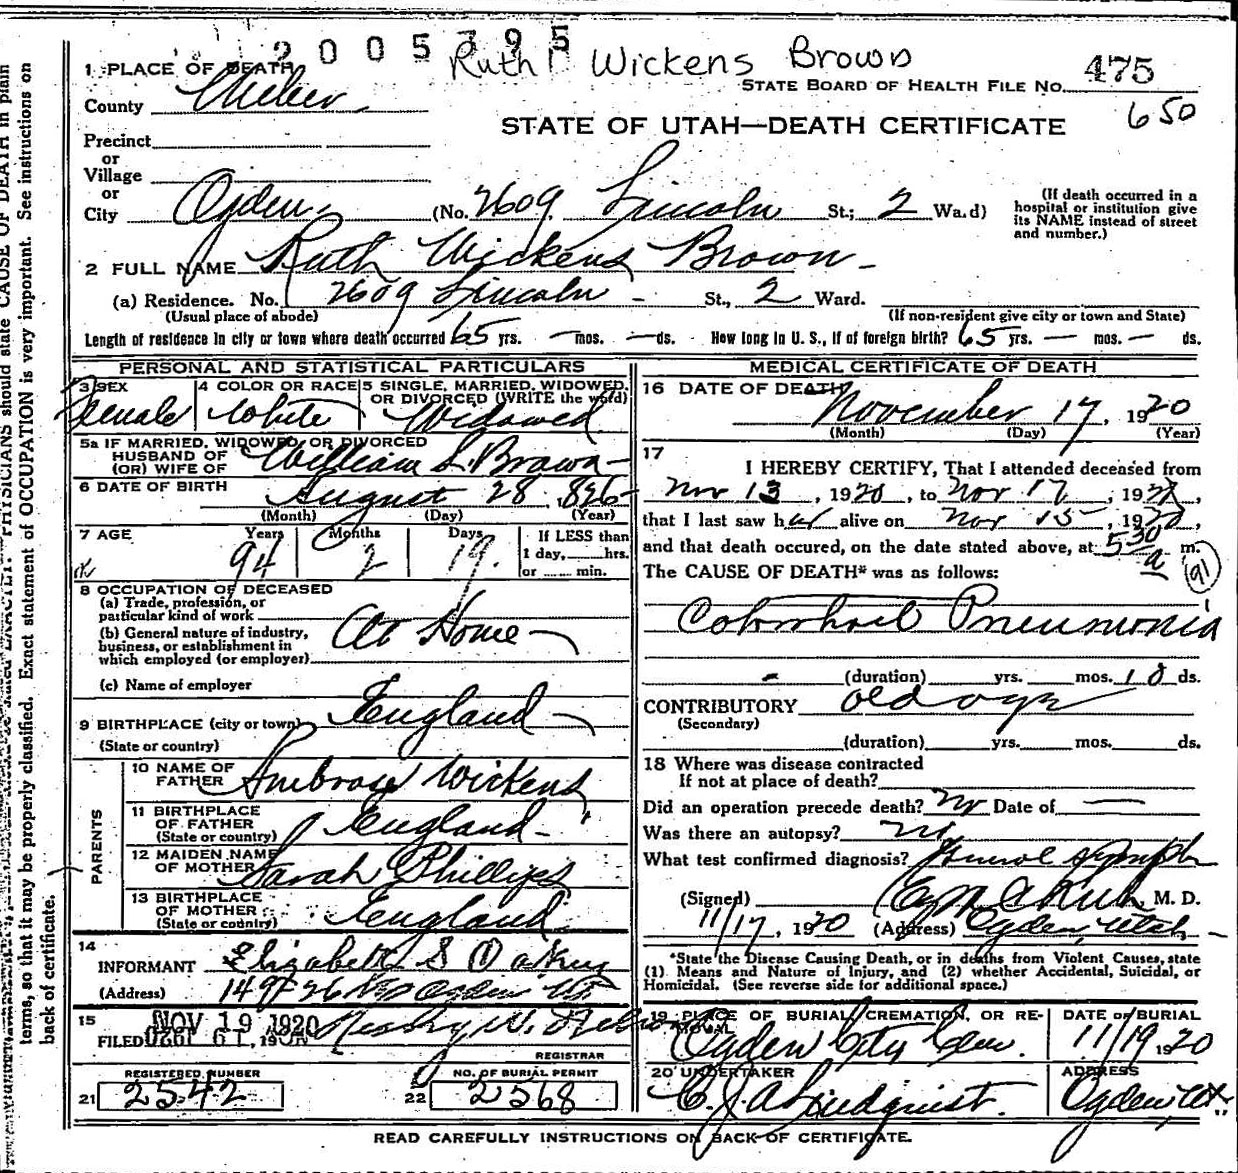 2005795
Ruth Wickens Brown
1 PLACE OF DEATH
STATE BOARD OF HEALTH FILE No. 475
County Weber
650
STATE OF UTAH—DEATH CERTIFICATE
Precinct
or
Village
or
City Ogden (No. 2609 Lincoln St.; 2 Ward)
(If death occurred in a
hospital or institution give
its NAME instead of street
and number.)
2 FULL NAME Ruth Wickens Brown
(a) Residence. No. 2609 Lincoln St., 2 Ward.
(Usual place of abode) (If non-resident give city or town and State)
Length of residence in city or town where death occurred 65 yrs. — mos. — ds. How long in U. S., if of foreign birth? 65 yrs. — mos. — ds.
PERSONAL AND STATISTICAL PARTICULARS
3 SEX 4 COLOR OR RACE 5 SINGLE, MARRIED, WIDOWED,
OR DIVORCED (WRITE the word)
Female White Widowed
5a IF MARRIED, WIDOWED, OR DIVORCED
HUSBAND OF
(OR) WIFE OF William L. Brown
6 DATE OF BIRTH August 28, 826
(Month) (Day) (Year)
7 AGE Years Months Days If LESS than
1 day, hrs.
or min.
94 2 19
8 OCCUPATION OF DECEASED
(a) Trade, profession, or
particular kind of work At Home
(b) General nature of industry,
business, or establishment in
which employed (or employer)
(c) Name of employer
9 BIRTHPLACE (city or town) England
(State or country)
PARENTS
10 NAME OF
FATHER Ambrose Wickens
11 BIRTHPLACE
OF FATHER England
(State or country)
12 MAIDEN NAME
OF MOTHER Sarah Phillips
13 BIRTHPLACE
OF MOTHER England
(State or country)
14
INFORMANT Elizabeth S
(Address) Ogden
15
FILED NOV 19 1920
REGISTRAR
REGISTERED NUMBER
21 2542
NO. OF BURIAL PERMIT
22 2568
MEDICAL CERTIFICATE OF DEATH
16 DATE OF DEATH
November 17, 1920
(Month) (Day) (Year)
17
I HEREBY CERTIFY, That I attended deceased from
Nov 13, 1920, to Nov 17, 192
that I last saw her alive on Nov 15, 1920,
and that death occured, on the date stated above, at 530 a m.
The CAUSE OF DEATH* was as follows: 91
Pneumonia
(duration) yrs. mos. 10 ds.
CONTRIBUTORY old age
(Secondary)
(duration) yrs. mos. ds.
18 Where was disease contracted
If not at place of death?
Did an operation precede death? No Date of —
Was there an autopsy? No
What test confirmed diagnosis?
(Signed) M. D.
11/17, 1920 (Address) Ogden, Utah
*State the Disease Causing Death, or in deaths from Violent Causes, state
(1) Means and Nature of Injury, and (2) whether Accidental, Suicidal, or
Homicidal. (See reverse side for additional space.)
19 PLACE OF BURIAL, CREMATION, OR RE-
MOVAL
Ogden City Cem.
DATE OF BURIAL
11/19 1920
20 UNDERTAKER
C. J. A. Lindquist.
ADDRESS
Ogden, Ut.
READ CAREFULLY INSTRUCTIONS ON BACK OF CERTIFICATE.
PHYSICIANS should state CAUSE OF DEATH in plain
terms, so that it may be properly classified. Exact statement of OCCUPATION is very important. See instructions on
back of certificate.